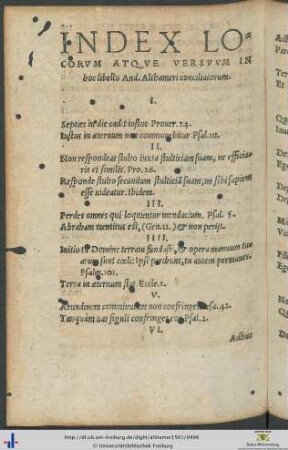 INDEX LO-
CORVM ATQVE VERSVVM IN
hoc libello And. Althameri conciliatorum.
I.
Septies in die cadit iustus Prouer. 24.
Iustus in æternum non commouebitur Psal. 111.
II.
Non respondeas stulto iuxta stulticiam suam, ne efficiaris ei similis, Pro. 26.
Responde stulto secundum stulticiā suam, ne sibi sapiens
esse uideatur. Ibidem.
III.
Perdes omnes qui loquuntur mendacium. Psal. 5.
Abraham mentitus est, (Gen. 12.) & non perijt.
IIII.
Initio tu Domine terram fundasti, & opera manuum tuarum sunt cœli: Ipsi peribunt, tu autem permanes.
Psalm. 101.
Terra in æternum stat. Eccle. 1.
V.
Arundinem comminutam non confringet. Esa. 42.
Tanquam uas figuli confringes eos Psal. 2.
VI.
Adhuc
http://dl.ub.uni-freiburg.de/diglit/althamer1561/0498
© Universitätsbibliothek Freiburg
Baden-Württemberg